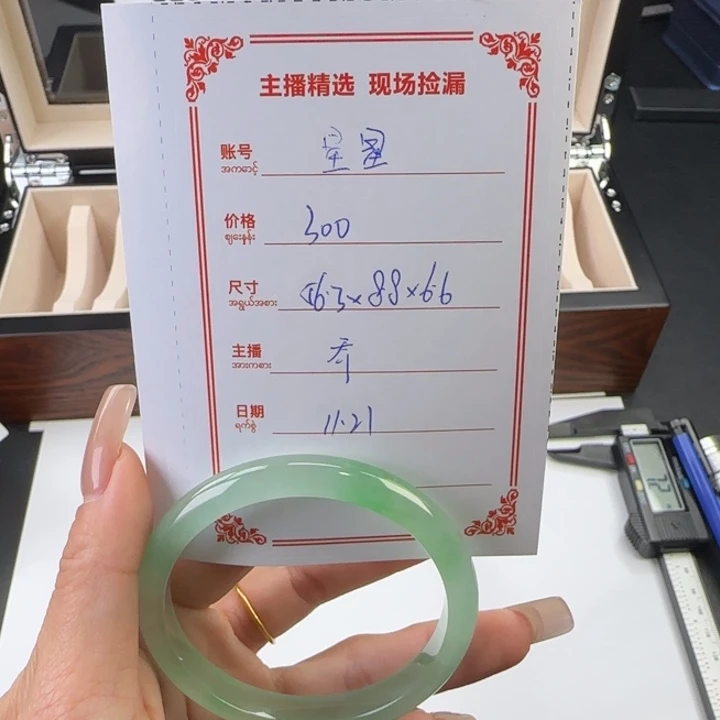 主播精选 现场捡漏
账号 星星
အကောင့်
价格 300
ဈေးနှုန်း
尺寸 56.3×8.8×6.6
အရွယ်အစား
主播 乔
အားကစား
日期 11.21
ရက်စွဲ